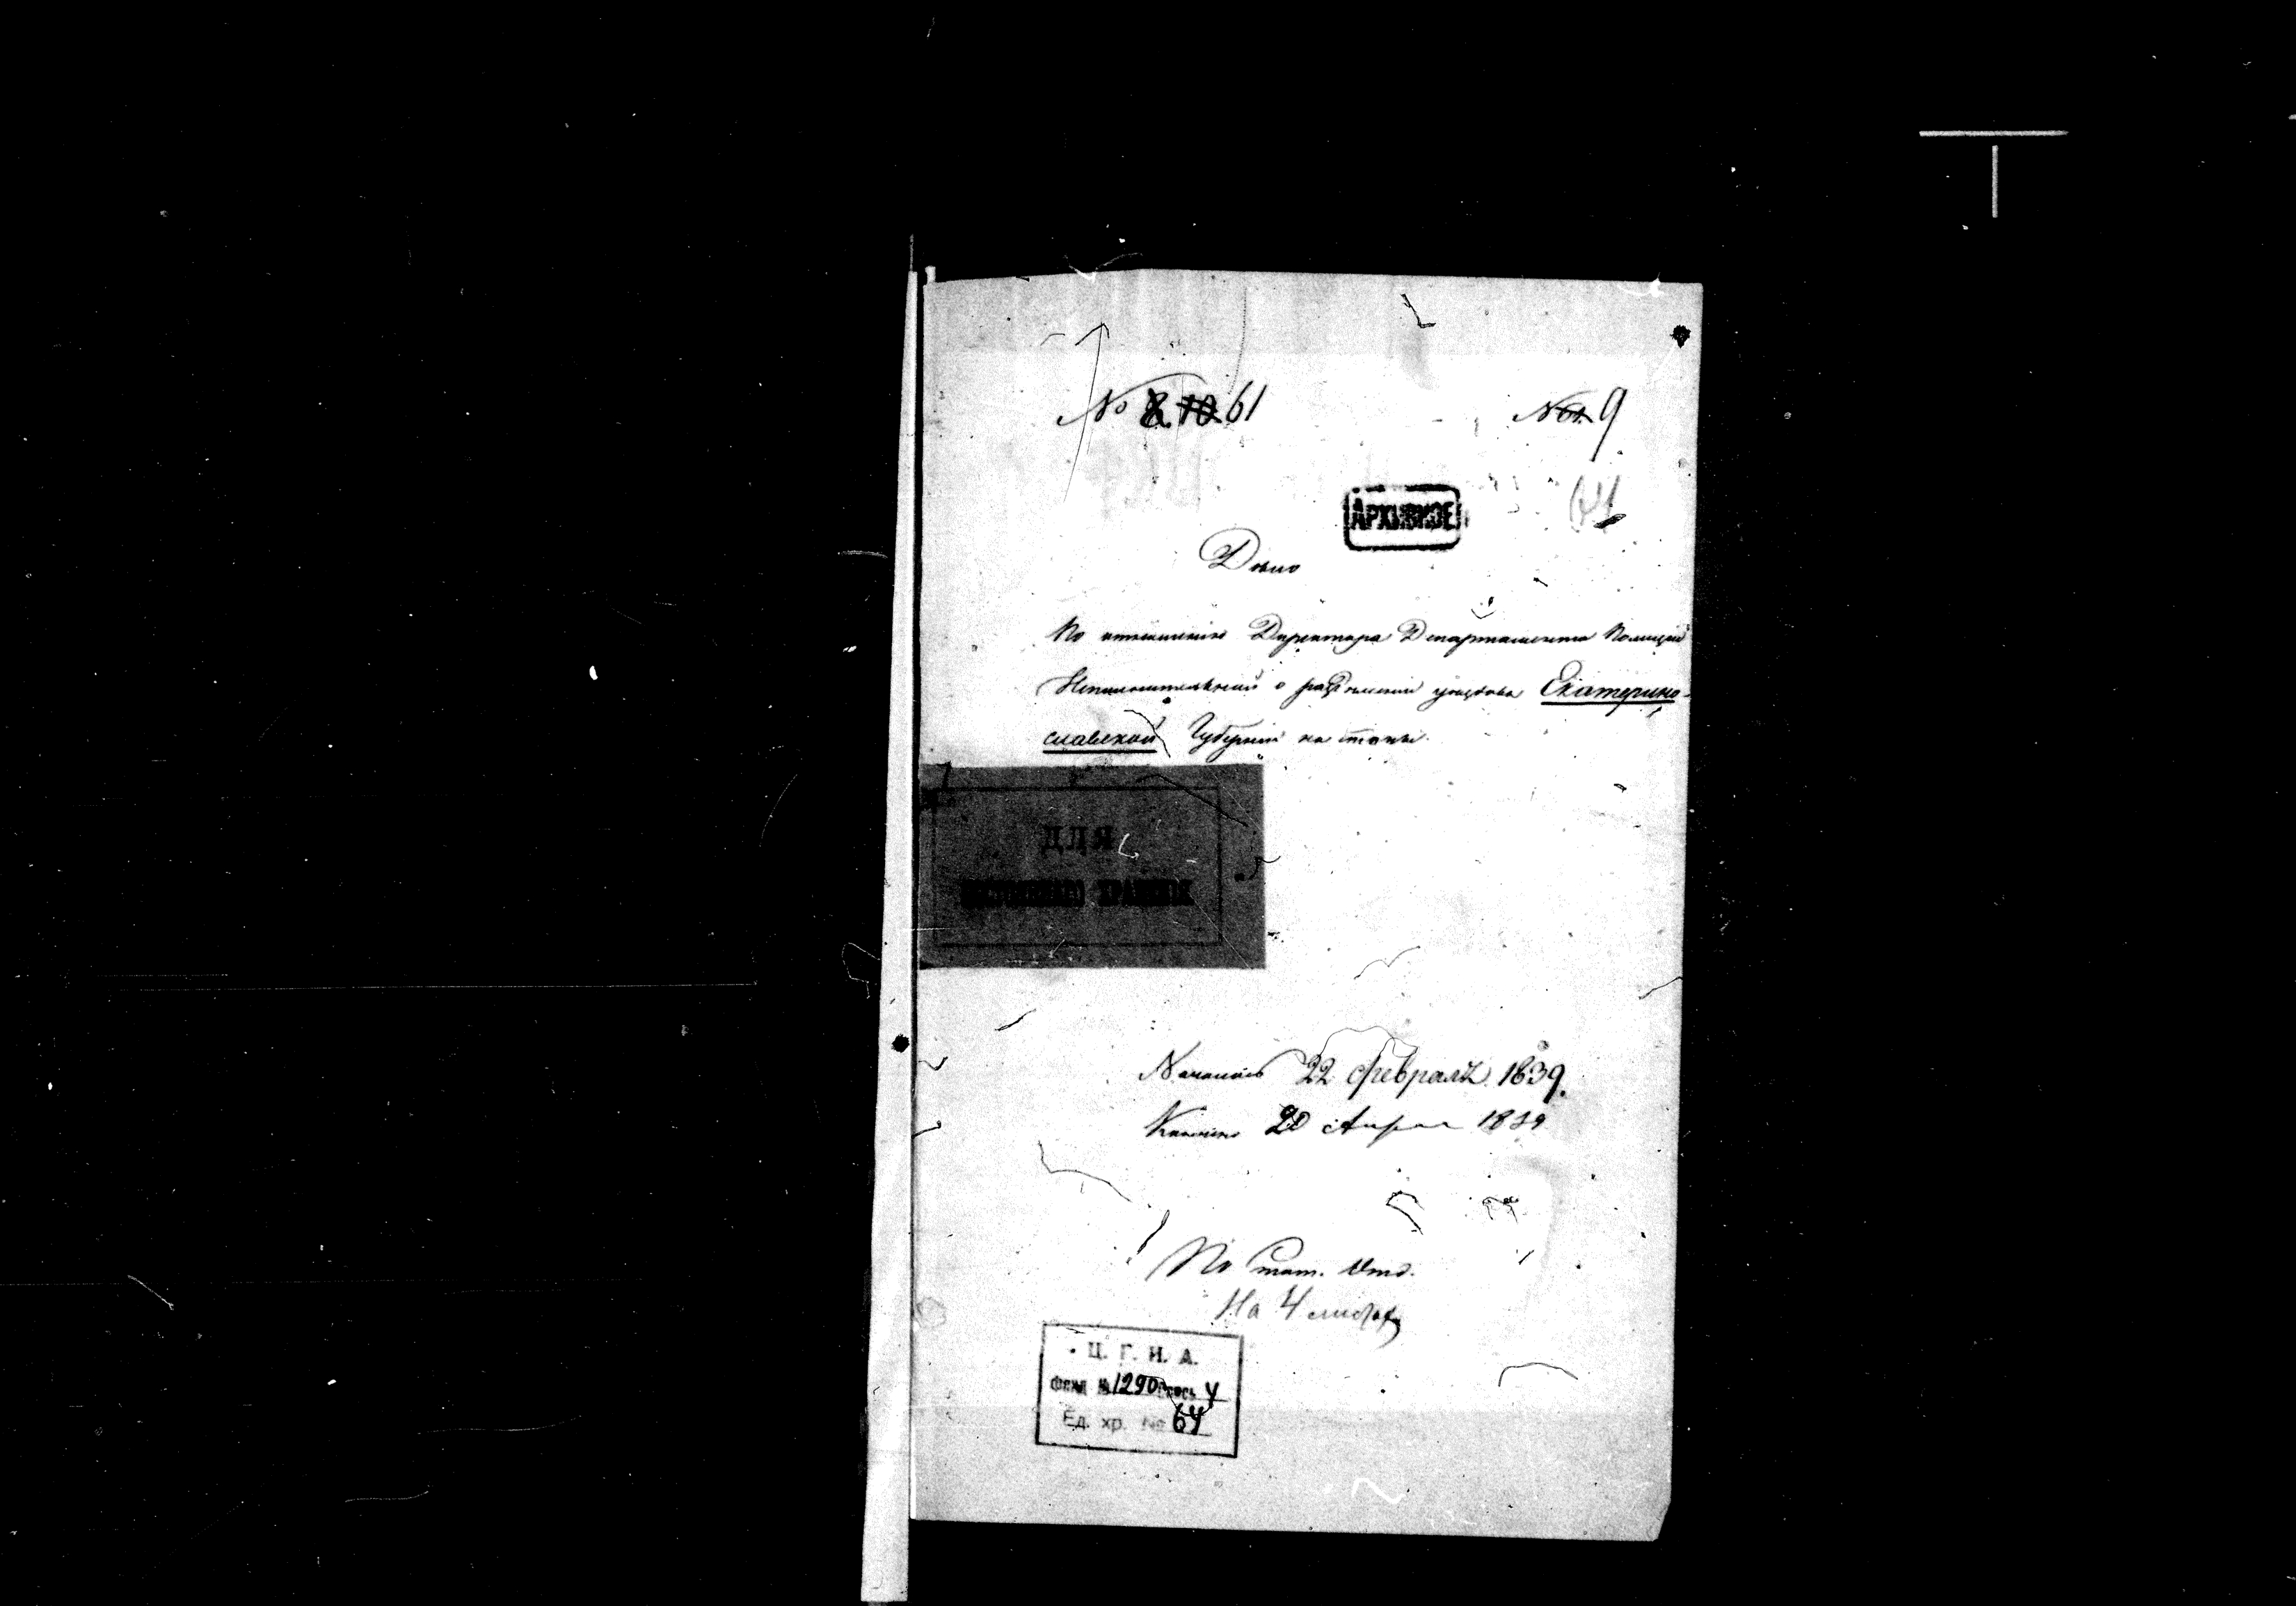 № 8. 10. 61
№ 61. 9
АРХИВНОЕ
64
Дѣло
По отношенію Директора Департамента Полиціи
Исполнительной о раздѣленіи уѣздовъ Екатерино-
славской Губерніи на станы.
ДЛЯ
ХРАНЕНІЯ
Началось 22 февраля 1839.
Кончено 20 Апреля 1839
По Стат. Отд.
На 4 листах
Ц. Г. И. А.
Фонд № 1290 Опись 4
Ед. хр. № 64